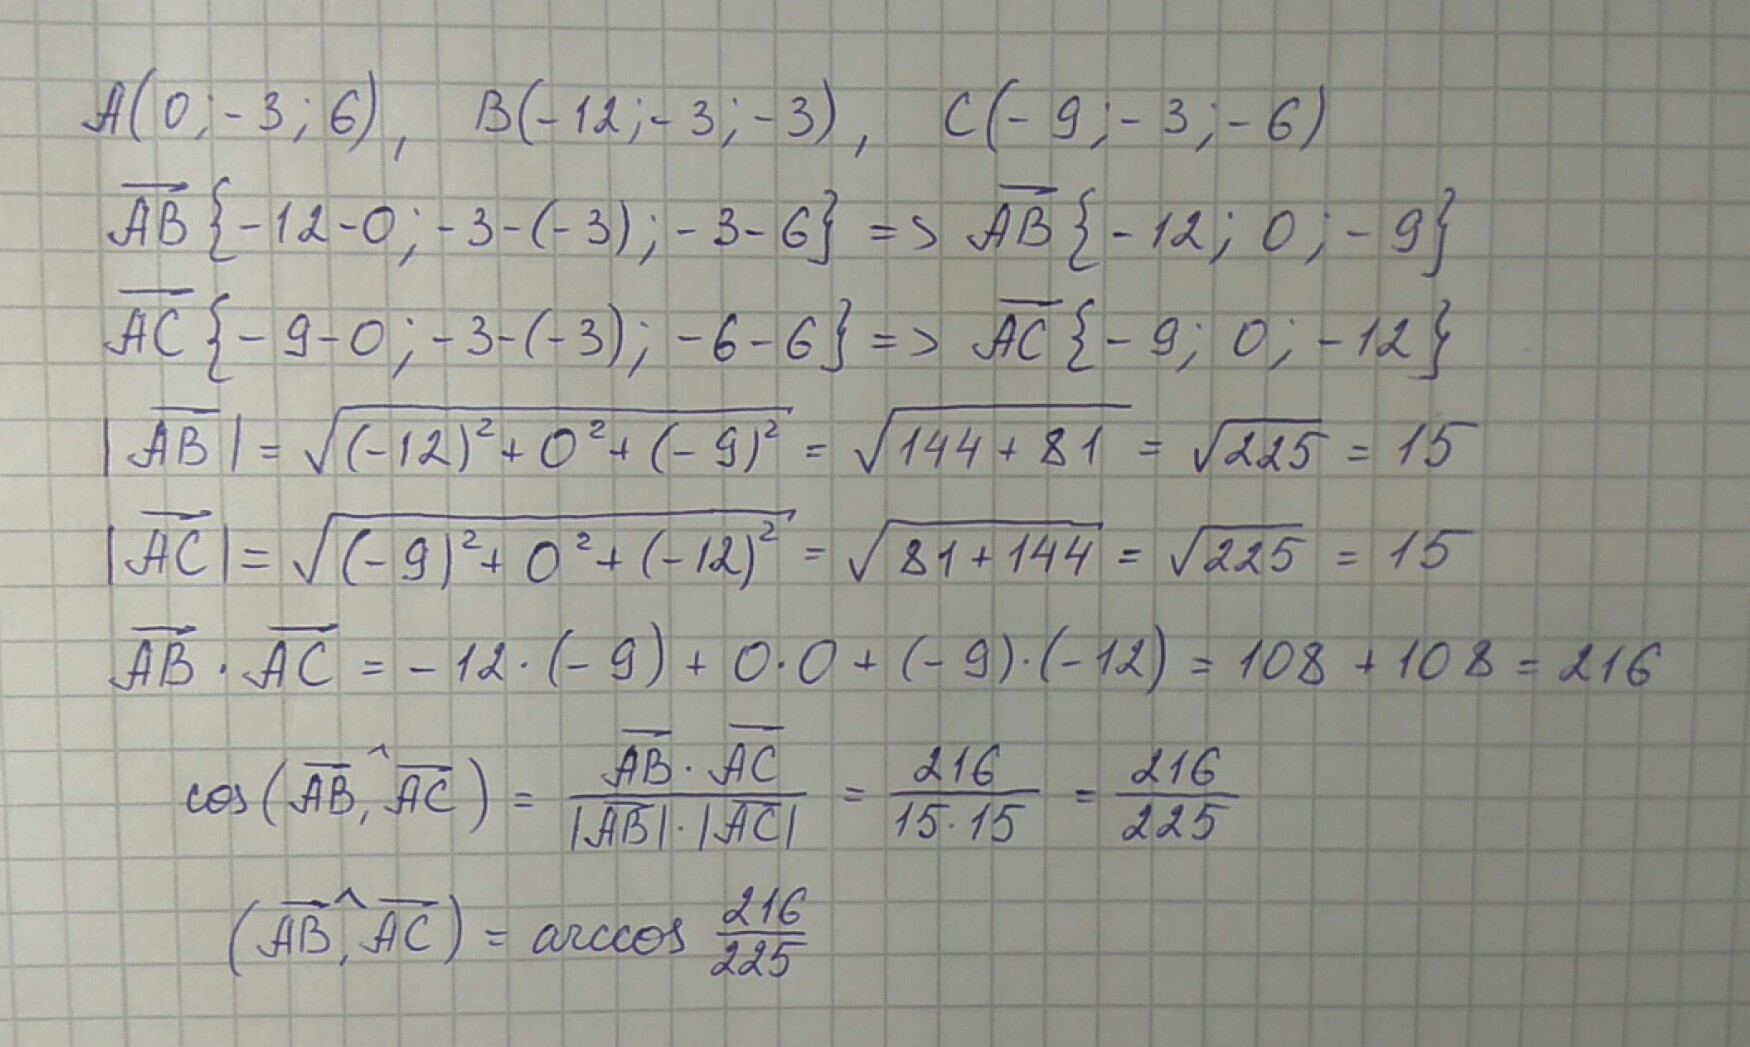 A(0;-3;6), B(-12;-3;-3), C(-9;-3;-6)
$\overrightarrow{AB}${-12-0;-3-(-3);-3-6} => $\overrightarrow{AB}${-12;0;-9}
$\overrightarrow{AC}${-9-0;-3-(-3);-6-6} => $\overrightarrow{AC}${-9;0;-12}
$|\overrightarrow{AB}| = \sqrt{(-12)^2+0^2+(-9)^2} = \sqrt{144+81} = \sqrt{225} = 15$
$|\overrightarrow{AC}| = \sqrt{(-9)^2+0^2+(-12)^2} = \sqrt{81+144} = \sqrt{225} = 15$
$\overrightarrow{AB} \cdot \overrightarrow{AC} = -12 \cdot (-9) + 0 \cdot 0 + (-9) \cdot (-12) = 108 + 108 = 216$
$\cos(\overrightarrow{AB} \hat{,} \overrightarrow{AC}) = \frac{\overrightarrow{AB} \cdot \overrightarrow{AC}}{|\overrightarrow{AB}| \cdot |\overrightarrow{AC}|} = \frac{216}{15 \cdot 15} = \frac{216}{225}$
$(\overrightarrow{AB} \hat{,} \overrightarrow{AC}) = \arccos \frac{216}{225}$